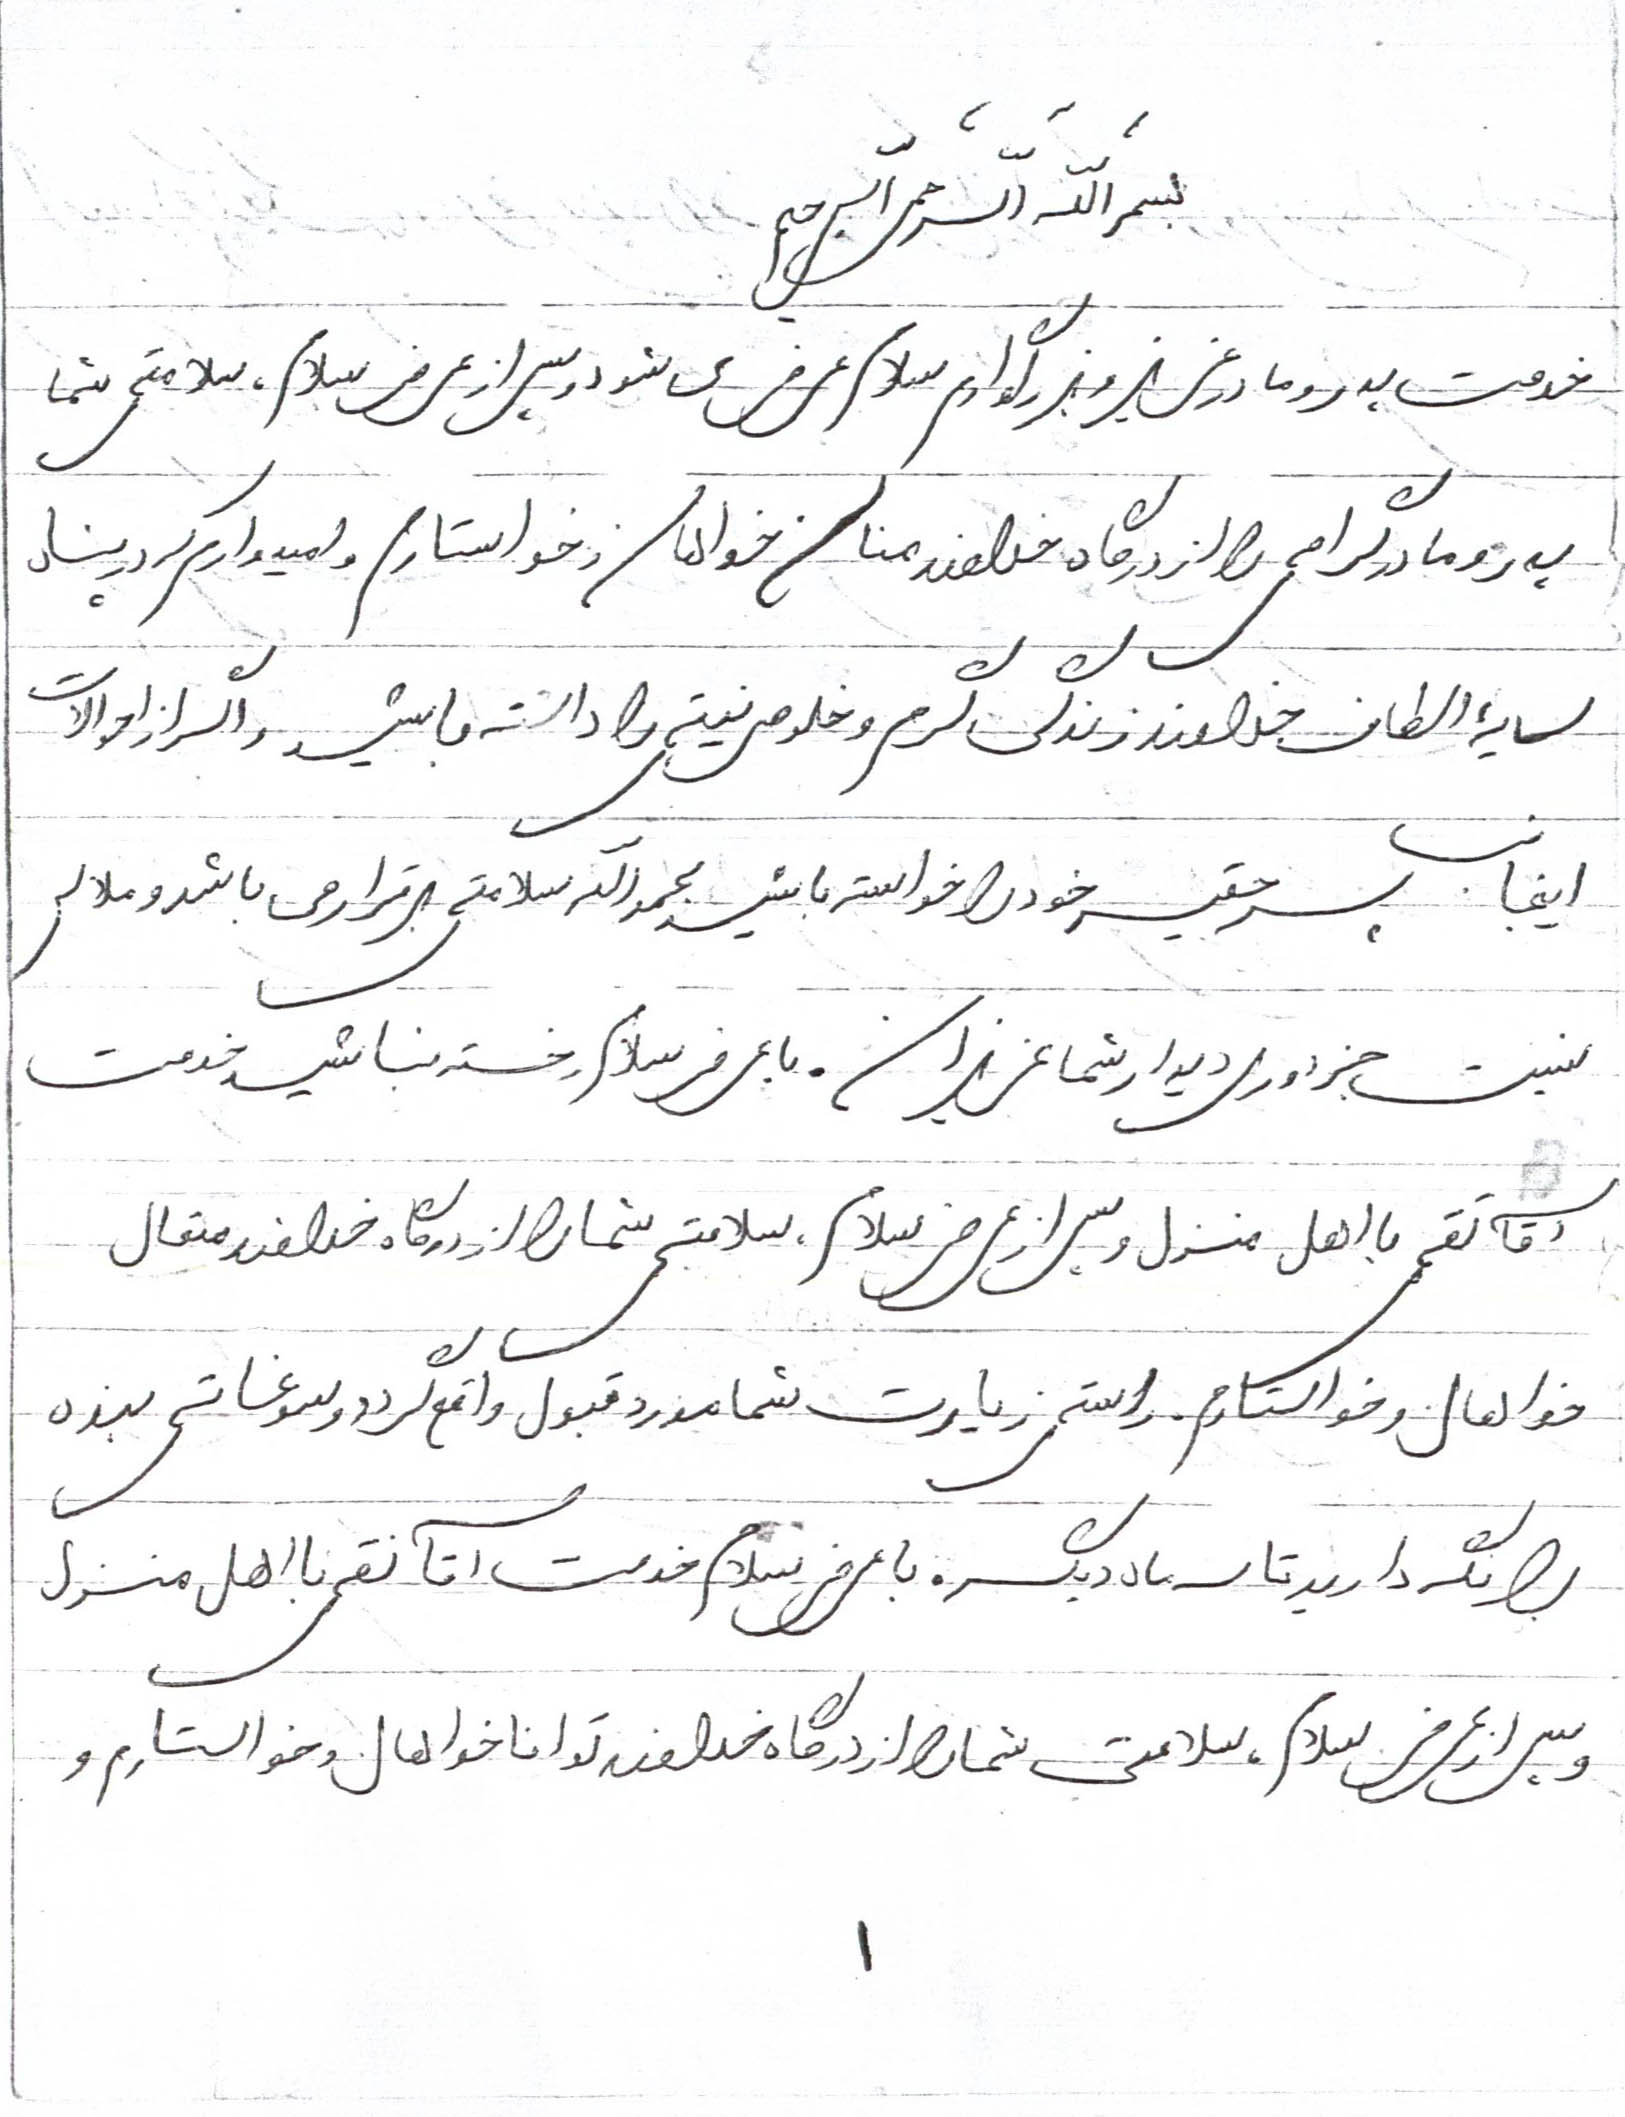 بسم الله الرحمن الرحیم
خدمت پدر و مادر عزیز و بزرگوارم سلام عرض می شود و پس از عرض سلام، سلامتی شما
پدر و مادر گرامی را از درگاه خداوند منان خواهان و خواستارم و امیدوارم که در پناه
سایهٔ الطاف خداوند زندگی گرم و خلوص نیتی را داشته باشید و اگر از احوالات
اینجانب پسر حقیر خود را خواسته باشید بحمدالله سلامتی برقرار می باشد و ملالی
نیست جز دوری دیدار شما عزیزان. با عرض سلام و خسته نباشید خدمت
آقا تقی با اهل منزل و پس از عرض سلام، سلامتی شما را از درگاه خداوند متعال
خواهان و خواستارم. راستی زیارت شما مورد قبول واقع گردد و سوغاتی بنده
را نگه دارید تا سه ماه دیگر. با عرض سلام خدمت آقا نقی با اهل منزل
و پس از عرض سلام، سلامتی شما را از درگاه خداوند توانا خواهان و خواستارم و
۱